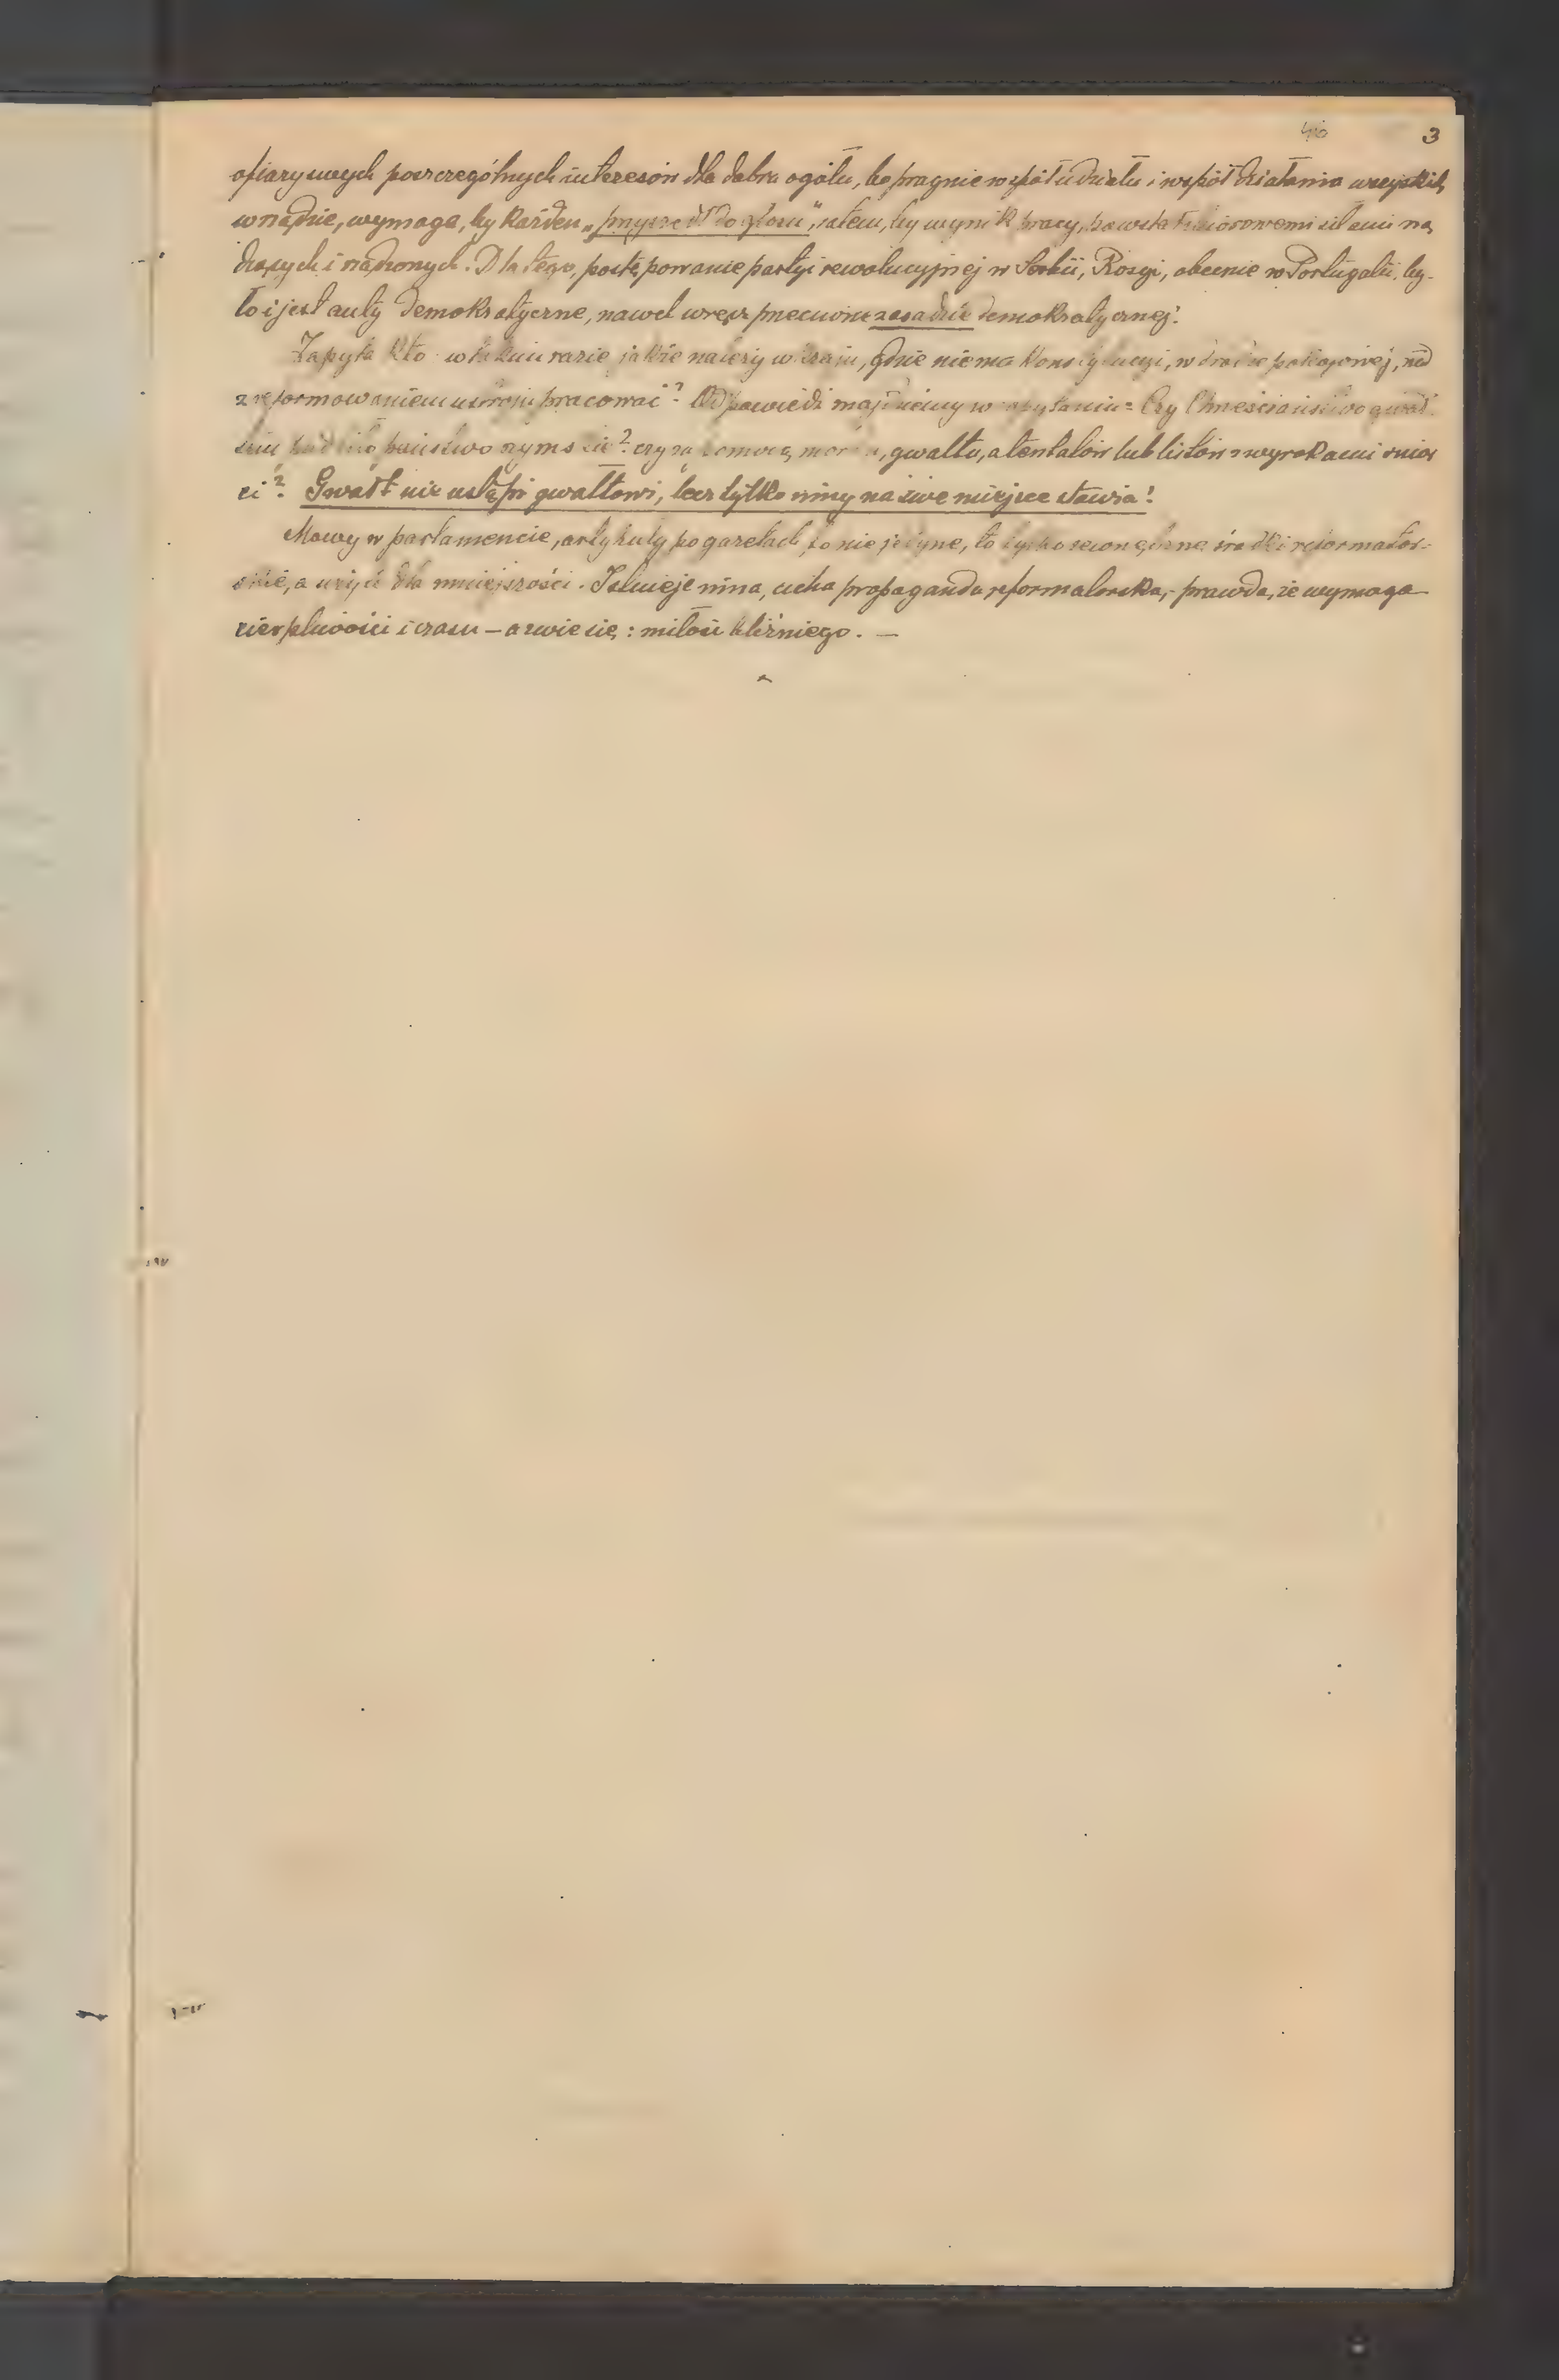 3
ofiary swych poszczególnych interesów dla dobra ogółu, bo pragnie współudziału i współdziałania wszystkich
w rządzie, wymaga, by każden „przyszedł do głosu", zatem, by wynik pracy, powstał zbiorowemi siłami rzą
dzących i rządzonych. Dla tego, postępowanie partyi rewolucyjnej w Serbii, Rosyi, obecnie w Portugalii, by-
ło i jest anty demokratyczne, nawet wręcz przeciwne zasadzie demokratycznej!
Zapyta kto w takim razie jakże należy w kraju, gdzie niema Konstytucyi, w drodze pokojowej, nad
zreformowaniem ustroju pracować? Odpowiedź znajdziemy w zapytaniu: Czy Chrześciaństwo gwał
tem państwo rzymskie? czy za pomocą mordu, gwałtu, atentatów lub listów z wyrokami śmier
ci? Gwałt nie ustąpi gwałtowi, lecz tylko inny na swe miejsce stawia!
Mowy w parlamencie, artykuły po gazetach to nie jedyne, to tylko zewnętrzne środki reformator-
skie, a użyć dla mniejszości. Istnieje inna, cicha propaganda reformatorska, - prawda, że wymaga
cierpliwości i czasu – a zwie się: miłość bliźniego. —